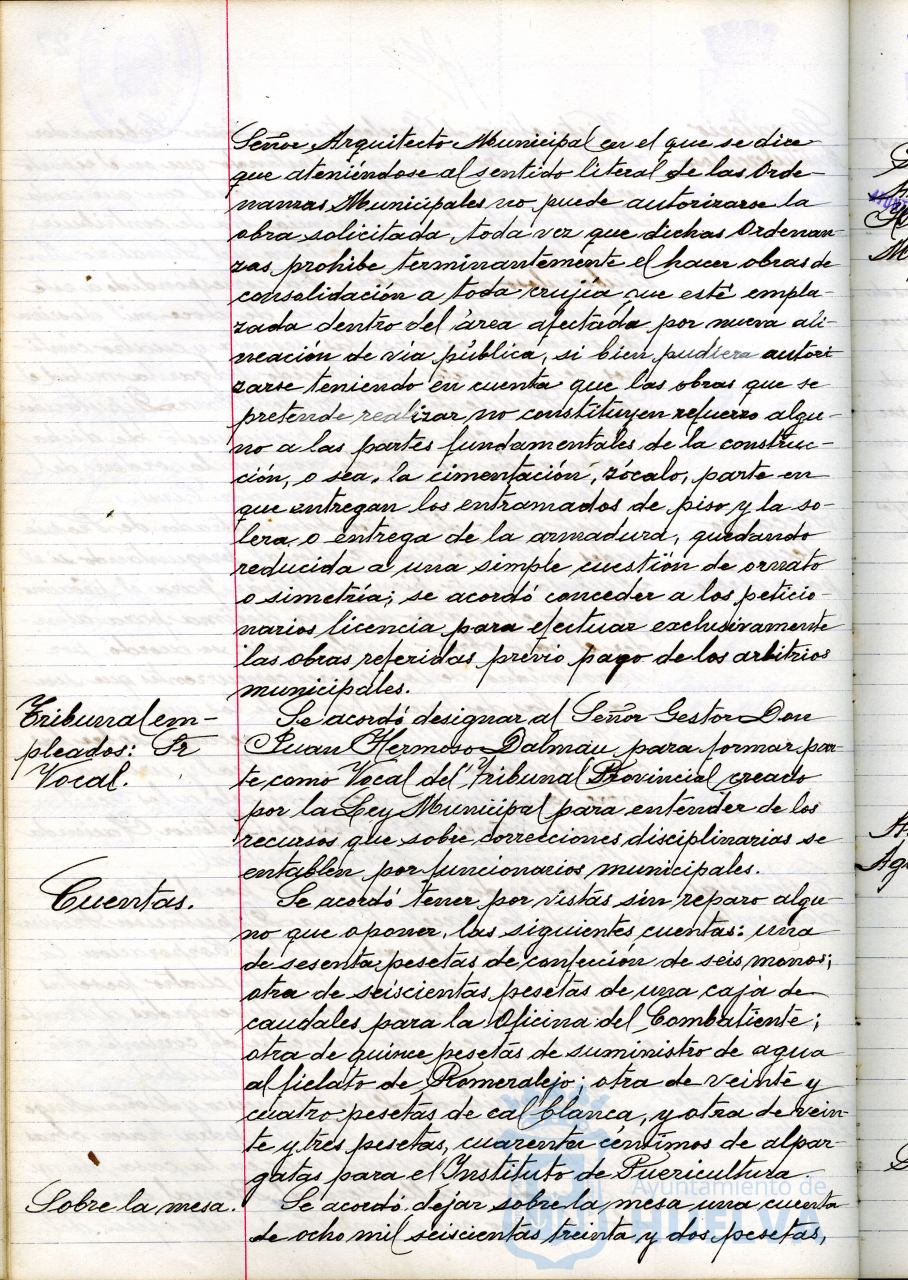 Señor Arquitecto Municipal en el que se dice
que ateniéndose al sentido literal de las Orde-
nanzas Municipales no puede autorizarse la
obra solicitada, toda vez que dichas Ordenan-
zas prohibe terminantemente el hacer obras de
consolidación a toda crujía que esté empla-
zada dentro del área afectada por nueva ali-
neación de vía pública, si bien pudiera autori-
zarse teniendo en cuenta que las obras que se
pretende realizar no constituyen refuerzo algu-
no a las partes fundamentales de la construc-
ción, o sea, la cimentación, zócalo, parte en
que entregan los entramados de piso y la so-
lera, o entrega de la armadura, quedando
reducida a una simple cuestión de ornato
o simetría; se acordó conceder a los peticio-
narios licencia para efectuar exclusivamente
las obras referidas previo pago de los arbitrios
municipales.
Tribunal em-
pleados: Sr
Vocal.
Se acordó designar al Señor Gestor Don
Juan Hermoso Dalmau para formar par-
te como Vocal del Tribunal Provincial creado
por la Ley Municipal para entender de los
recursos que sobre correcciones disciplinarias se
entablen por funcionarios municipales.
Cuentas.
Se acordó tener por vistas sin reparo algu-
no que oponer, las siguientes cuentas: una
de sesenta pesetas de confección de seis monos;
otra de seiscientas pesetas de una caja de
caudales para la Oficina del Combatiente;
otra de quince pesetas de suministro de agua
al fielato de Romeralejo; otra de veinte y
cuatro pesetas de cal blanca, y otra de vein-
te y tres pesetas, cuarenta céntimos de alpar-
gatas para el Instituto de Puericultura.
Sobre la mesa.
Se acordó dejar sobre la mesa una cuenta
de ocho mil seiscientas treinta y dos pesetas,
Ayuntamiento de
HUELVA